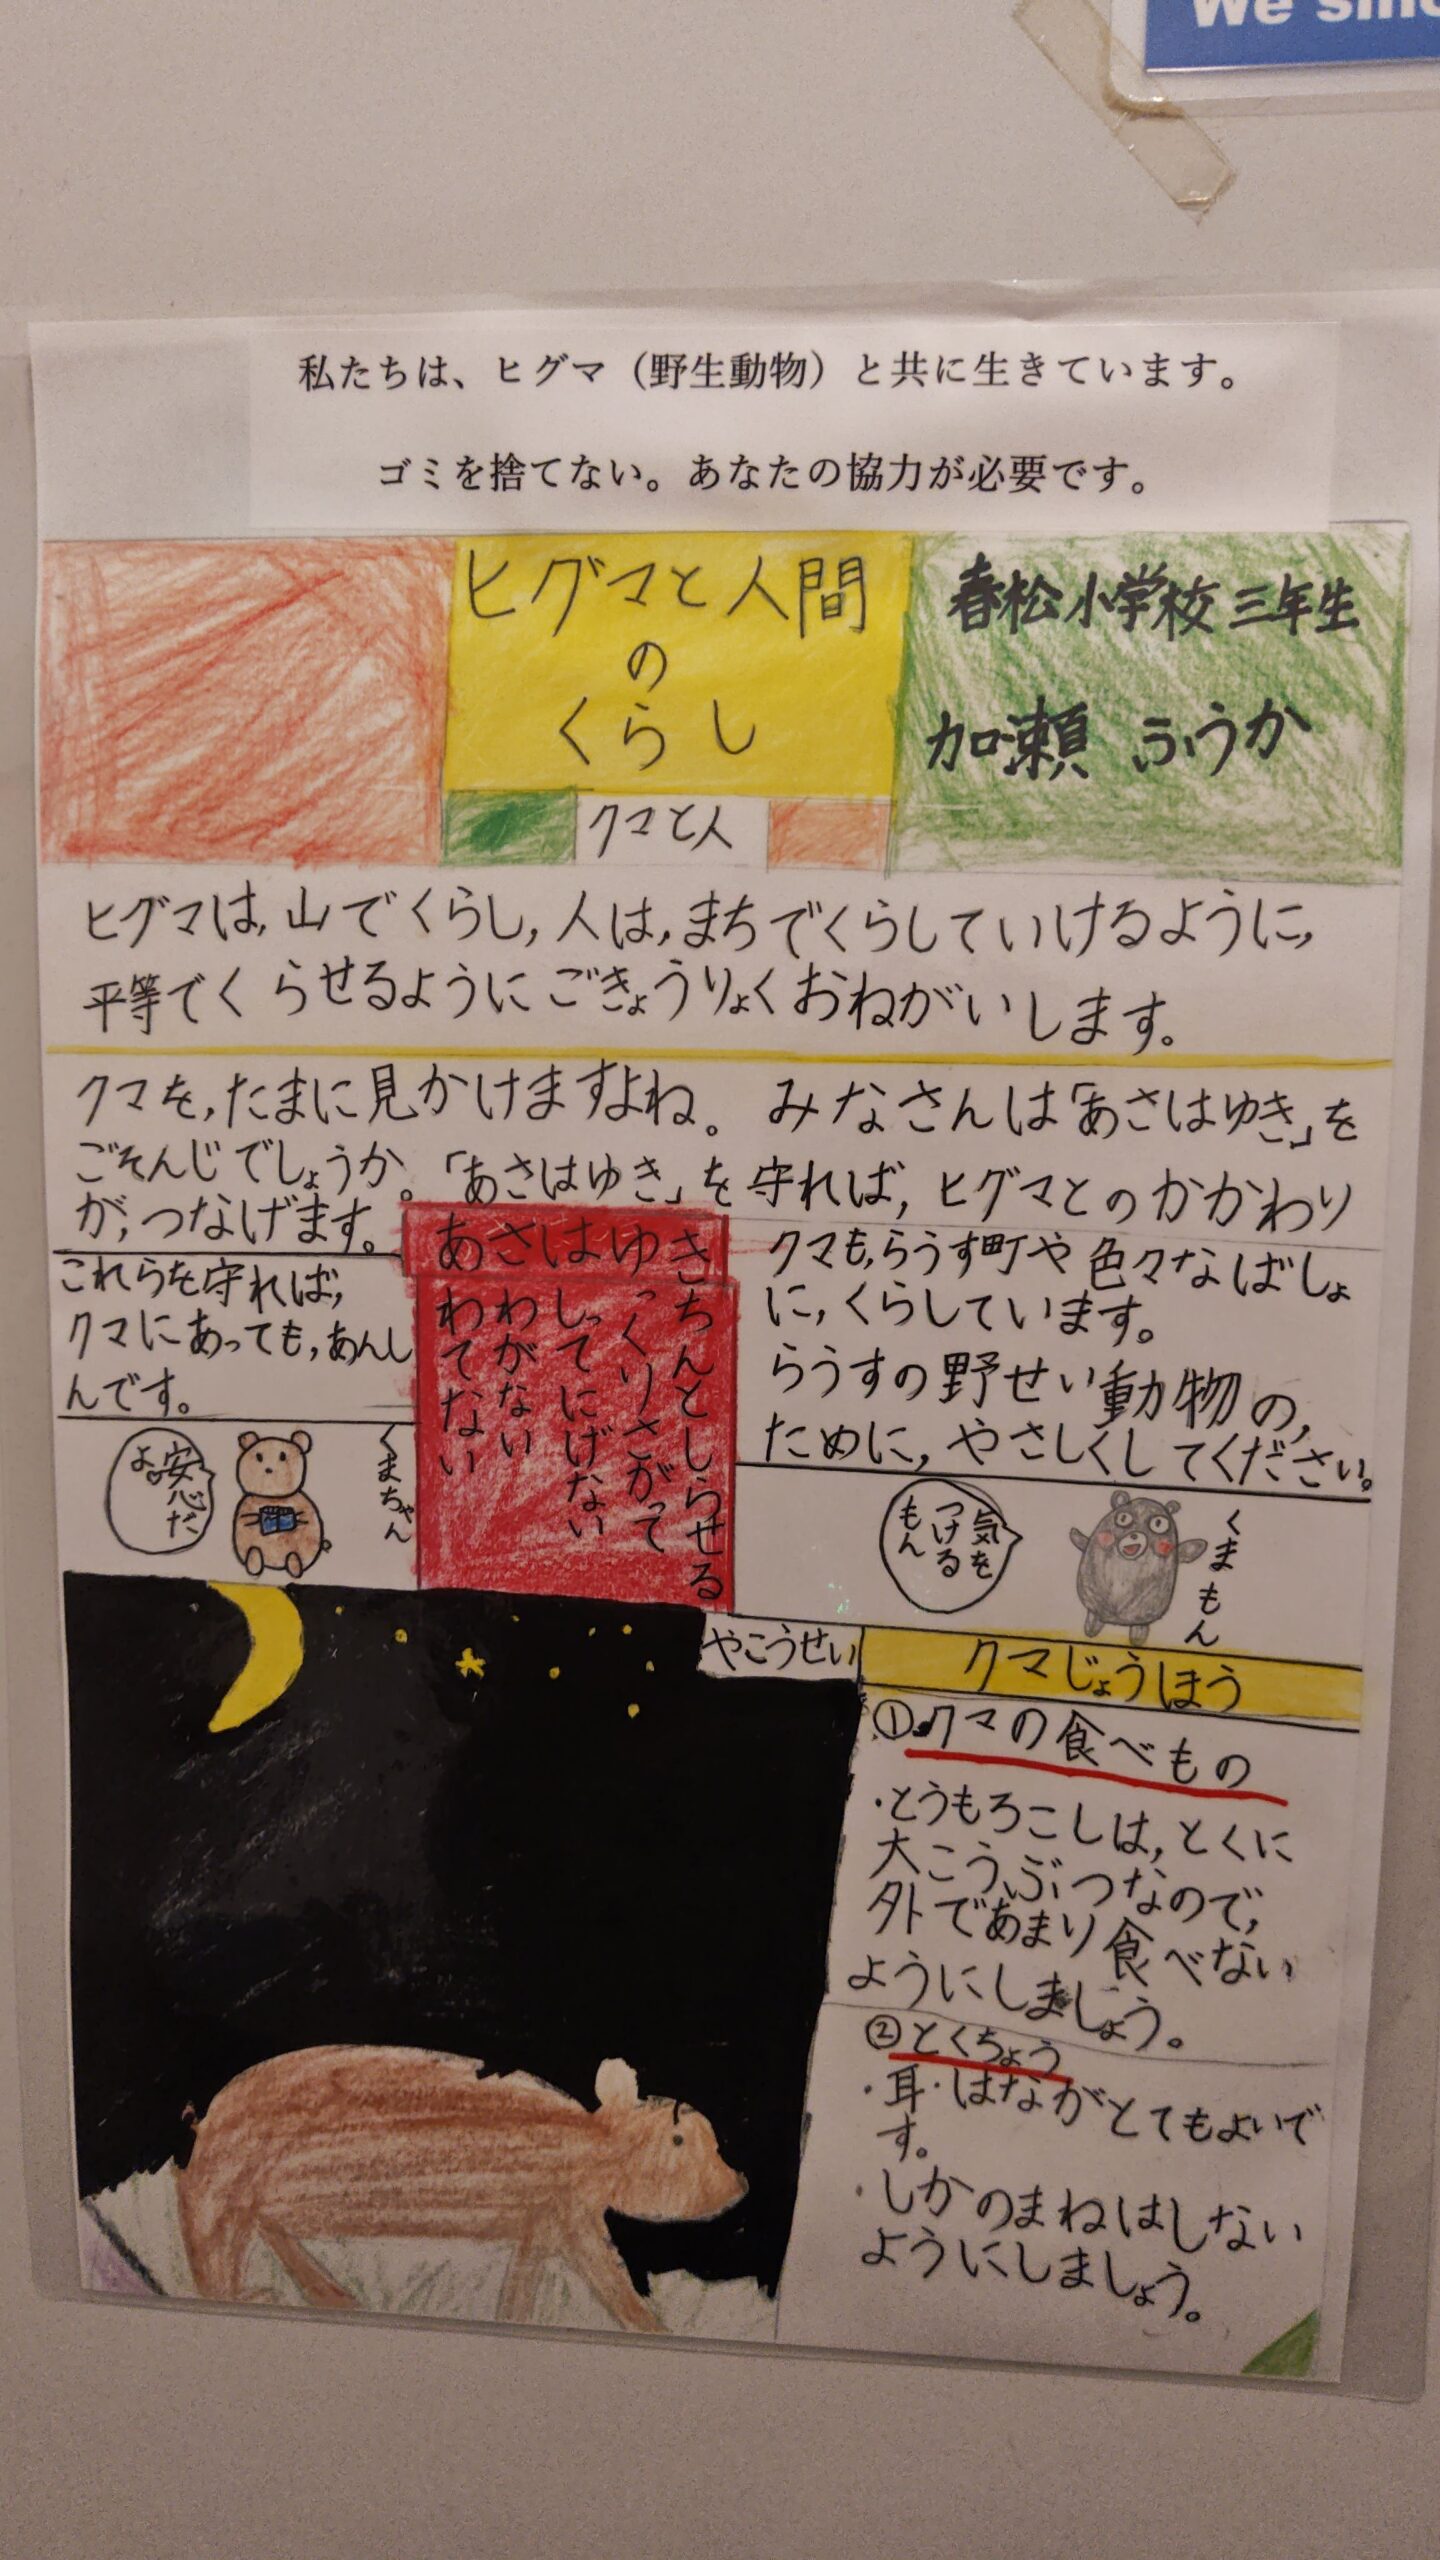 We sinc
私たちは、ヒグマ（野生動物）と共に生きています。
ゴミを捨てない。あなたの協力が必要です。
ヒグマと人間
の
くらし
春松小学校三年生
加瀬 ふうか
クマと人
ヒグマは,山でくらし,人は,まちでくらしていけるように,
平等でくらせるようにごきょうりょくおねがいします。
クマを,たまに見かけますよね。みなさんは「あさはゆき」を
ごそんじでしょうか。「あさはゆき」を守れば,ヒグマとのかかわり
が,つなげます。
これらを守れば,
クマにあっても,あんし
んです。
くまちゃん
安心だ
よ。
あさはゆき
きちんとしらせる
ゆっくりさがって
はしってにげない
さわがない
あわてない
クマも,らうす町や色々なばしょ
に,くらしています。
らうすの野せい動物の,
ために,やさしくしてください。
くまもん
気を
つける
もん
やこうせい
クマじょうほう
①クマの食べもの
・とうもろこしは,とくに
大こうぶつなので,
外であまり食べない
ようにしましょう。
②とくちょう
・耳・はながとてもよいで
す。
・しかのまねはしない
ようにしましょう。